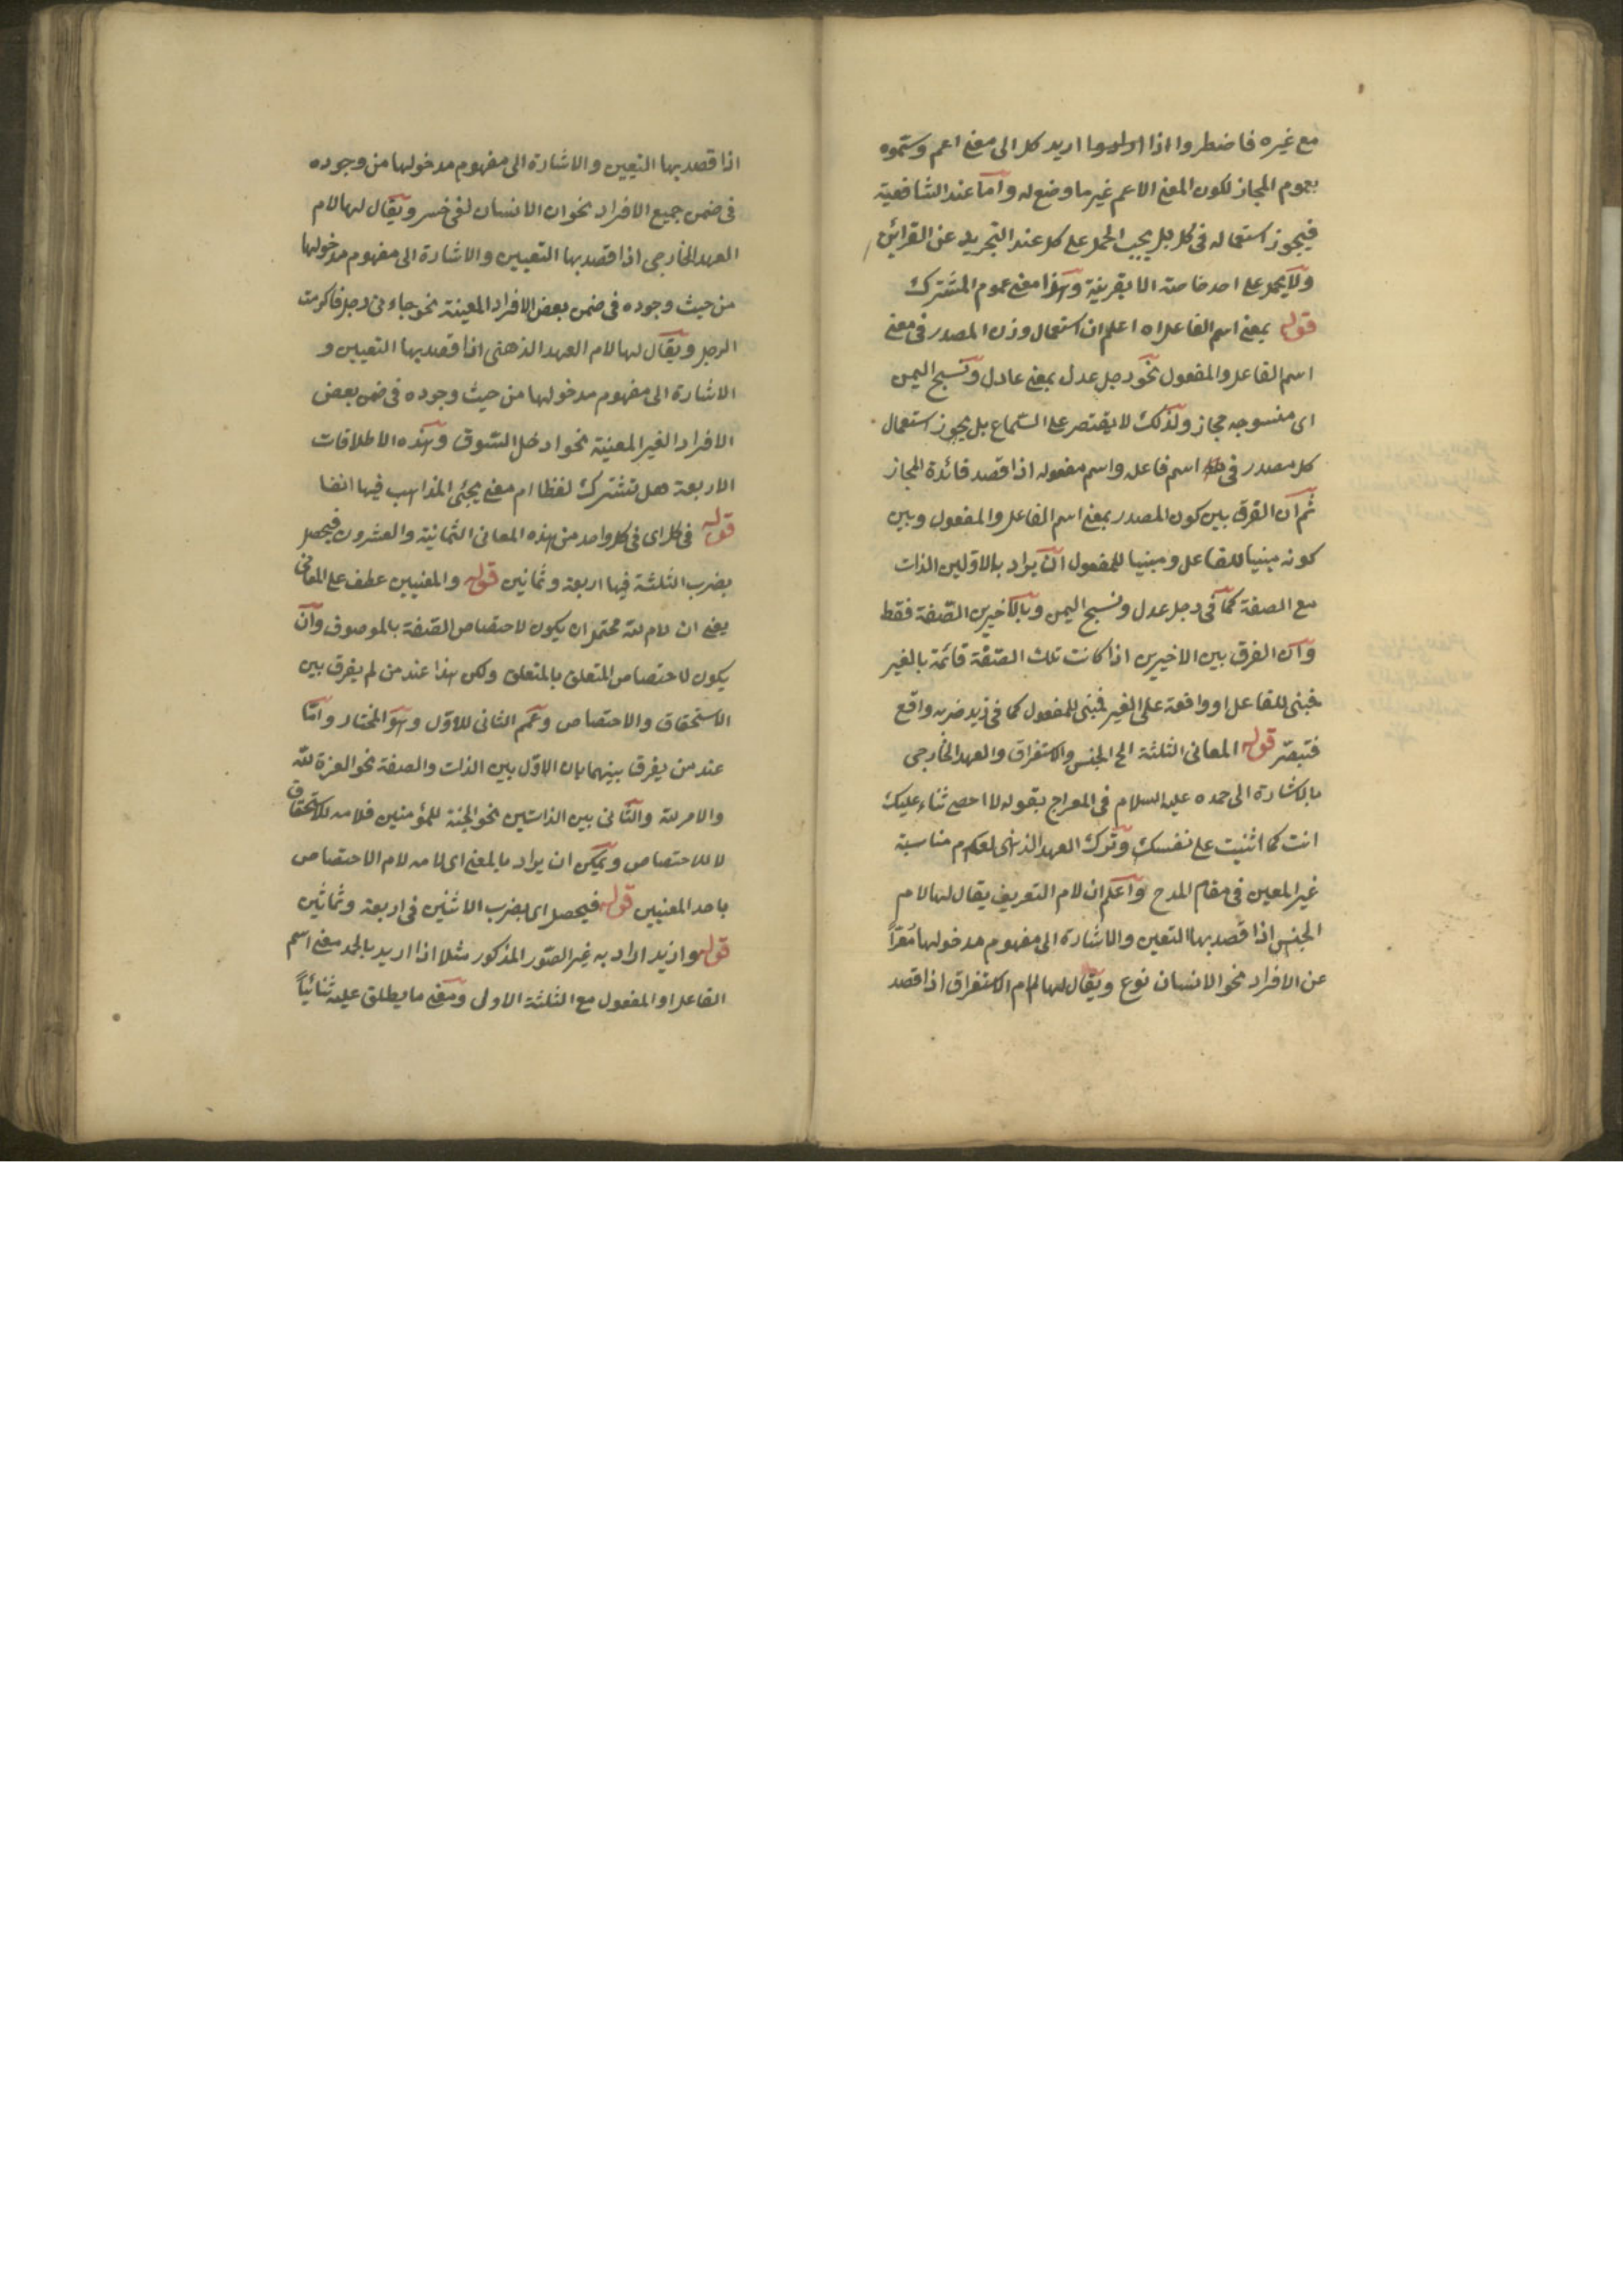 مع غيره فاضطروا اذا اريد كل الى معنى اعم وسموه
بعموم المجاز لكون المعنى الاعم غير ما وضع له وأما عند الشافعية
فيجوز استعماله فى كل بل يجب الحمل على كل عند التجريد عن القرائن
ولا يحمل على احد خاصة الا بقرينة وهذا معنى عموم المشترك
قوله بمعنى اسم الفاعل اه اعلم ان استعمال وزن المصدر فى معنى
اسم الفاعل والمفعول نحو رجل عدل بمعنى عادل ونسج اليمن
اى منسوجه مجاز ولذلك لا يقتصر على السماع بل يجوز استعمال
كل مصدر فى اسم فاعله واسم مفعوله اذا قصد فائدة المجاز
ثم ان الفرق بين كون المصدر بمعنى اسم الفاعل والمفعول وبين
كونه مبنيا للفاعل ومبنيا للمفعول ان يراد بالاولين الذات
مع الصفة كما فى رجل عدل ونسج اليمن وبالاخيرين الصفة فقط
وان الفرق بين الاخيرين اذا كانت تلك الصفة قائمة بالغير
فبنى للفاعل او واقعة على الغير فبنى للمفعول كما فى زيد ضربه واقع
فتبصر قوله المعانى الثلثة الخ الجنس والاستغراق والعهد الخارجى
بالاشارة الى حمده عليه السلام فى المعراج بقوله لا احصى ثناء عليك
انت كما اثنيت على نفسك وترك العهد الذهنى لعدم مناسبة
غير المعين فى مقام المدح واعلم ان لام التعريف يقال لها لام
الجنس اذا قصد بها التعين والاشارة الى مفهوم مدخولها معرًّا
عن الافراد نحو الانسان نوع ويقال لها لام الاستغراق اذا قصد
اذا قصد بها التعيين والاشارة الى مفهوم مدخولها من وجوده
فى ضمن جميع الافراد نحو ان الانسان لفى خسر ويقال لها لام
العهد الخارجى اذا قصد بها التعيين والاشارة الى مفهوم مدخولها
من حيث وجوده فى ضمن بعض الافراد المعينة نحو جاءنى رجل فاكرمت
الرجل ويقال لها لام العهد الذهنى اذا قصد بها التعيين و
الاشارة الى مفهوم مدخولها من حيث وجوده فى ضمن بعض
الافراد الغير المعينة نحو ادخل السوق وهذه الاطلاقات
الاربعة هل تشترك لفظا ام معنى يجئ المذاهب فيها ايضا
قوله فى كل اى فى كل واحد من هذه المعانى الثمانية والعشرون فيحصل
بضرب الثلثة فيها اربعة وثمانين قوله والمعنيين عطف على المعانى
يعنى ان لام لله محتمل ان يكون لاختصاص الصفة بالموصوف وان
يكون لاختصاص المتعلق بالمتعلق ولكن هذا عند من لم يفرق بين
الاستحقاق والاختصاص وعمم الثانى للاول وهو المختار واما
عند من يفرق بينهما بان الاول بين الذات والصفة نحو العزة لله
والامر لله والثانى بين الذاتين نحو الجنة للمؤمنين فلامه للاستحقاق
لا للاختصاص ويمكن ان يراد بالمعنى اى لامه لام الاختصاص
باحد المعنيين قوله فيحصل اى بضرب الاثنين فى اربعة وثمانين
قوله وازيد اراد به غير الصور المذكور مثلا اذا اريد بالحمد معنى اسم
الفاعل او المفعول مع الثلثة الاولى ومعنى ما يطلق عليه ثنائياً